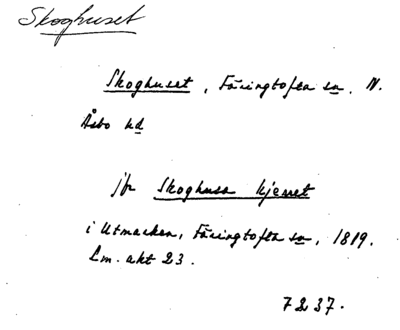 Skoghuset
Skoghuset, Färingtofta sn, N.
Åsbo hd
jfr Skoghusa kjerret
i Utmarken, Färingtofta sn, 1819.
Lm. akt 23.
7237.